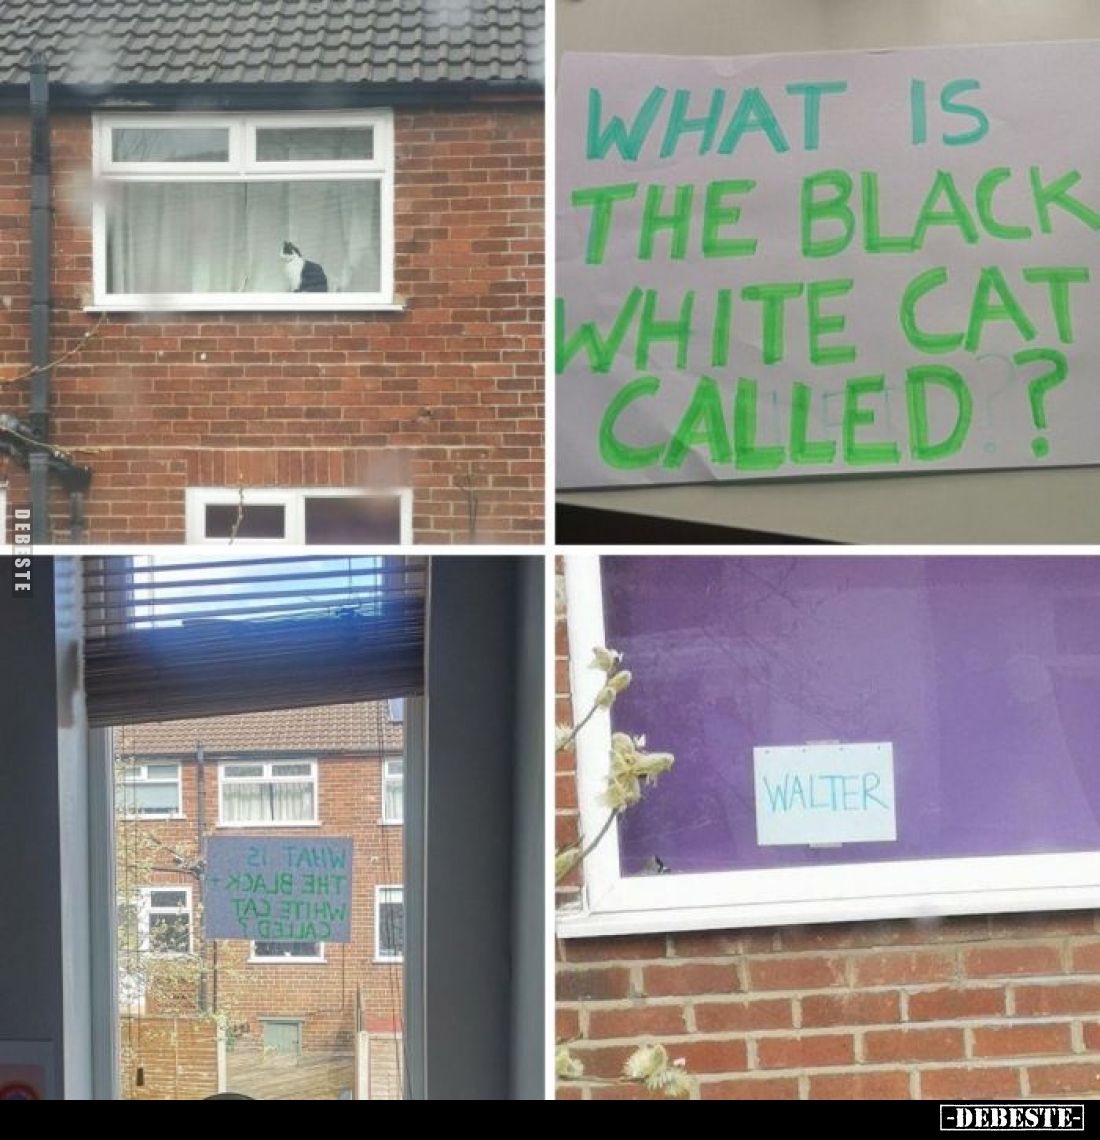 WHAT IS
THE BLACK
WHITE CAT
CALLED?
DEBESTE
WHAT IS
THE BLACK +
WHITE CAT
CALLED?
WALTER
-DEBESTE-